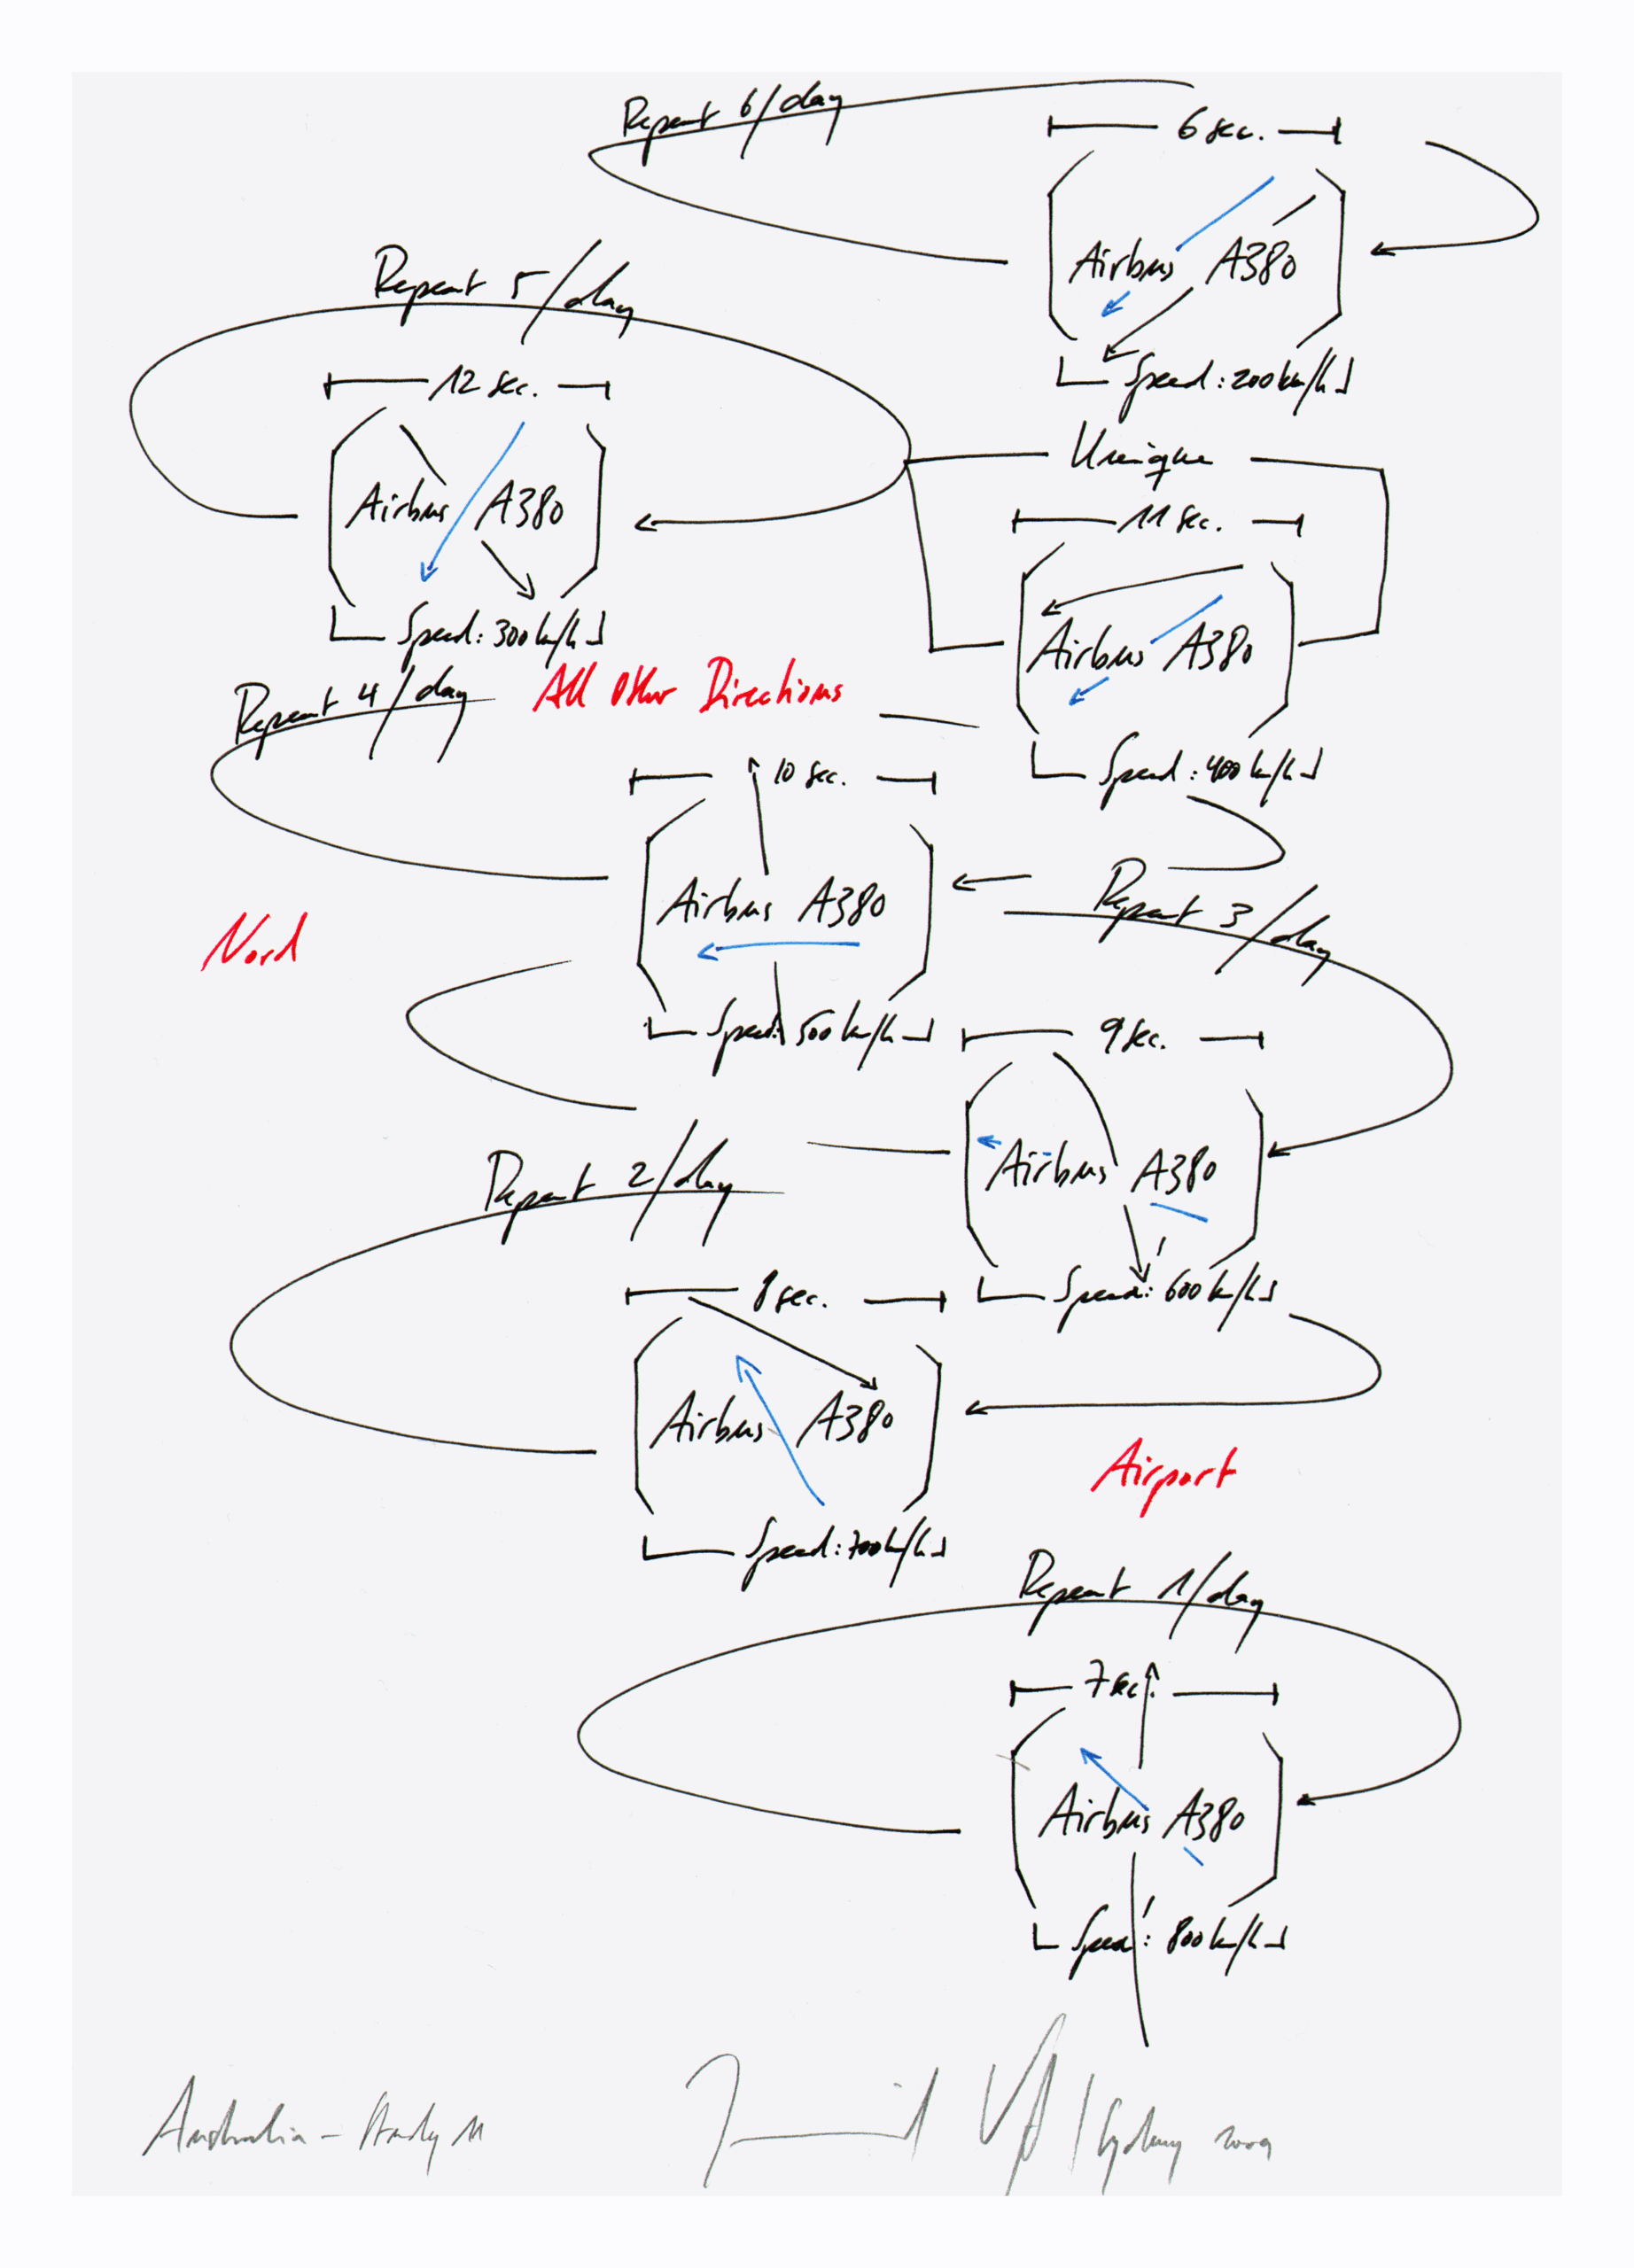 Repeat 6/day
6 sec.
Airbus A380
Speed: 200 km/h
Repeat 5/day
12 sec.
Airbus A380
Speed: 300 km/h
Unique
11 sec.
Airbus A380
Speed: 400 km/h
All Other Directions
Repeat 4/day
10 sec.
Airbus A380
Speed: 500 km/h
Nord
Repeat 3/day
9 sec.
Airbus A380
Speed: 600 km/h
Repeat 2/day
8 sec.
Airbus A380
Speed: 700 km/h
Airport
Repeat 1/day
7 sec.
Airbus A380
Speed: 800 km/h
Australia - Study 11
Sydney 2009